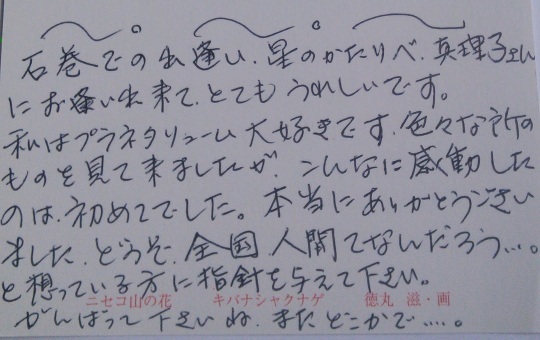 石巻での出逢い、星のかたりべ、真理子さん
にお逢い出来て、とてもうれしいです。
私はプラネタリューム大好きです、色々な所の
ものを見て来ましたが、こんなに感動した
のは、初めてでした。本当にありがとうござい
ました、どうぞ、全国、人間てなんだろう…。
と想っている方に指針を与えて下さい。
ニセコ山の花 キバナシャクナゲ 徳丸 滋・画
がんばって下さいね、またどこかで……。